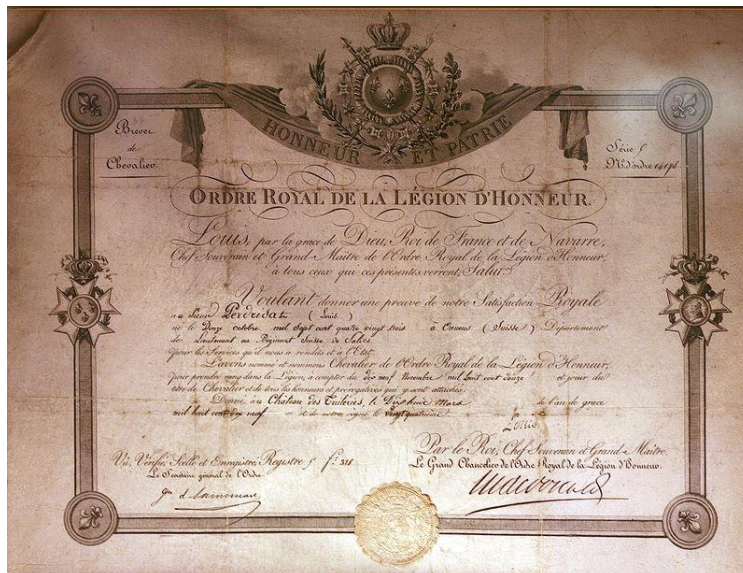 HONNEUR ET PATRIE
Brevet
de
Chevalier.
Série
N.º d'ordre 14178
ORDRE ROYAL DE LA LÉGION D'HONNEUR.
Louis, par la grace de Dieu, Roi de France et de Navarre,
Chef Souverain et Grand-Maître de l'Ordre Royal de la Légion d'Honneur,
à tous ceux qui ces présentes verront, Salut
Voulant donner une preuve de notre Satisfaction Royale
au Sieur Perdrisat (Louis)
né le Douze octobre mil sept cent quatre vingt trois à (Suisse) Département
de Lieutenant au Régiment Suisse de Salis
pour les Services qu'il nous a rendus et à l'Etat.
L'avons nommé et nommons Chevalier de l'Ordre Royal de la Légion d'Honneur,
Pour prendre rang dans la Légion, à compter du dix neuf Novembre mil huit cent douze et jouir du
titre de Chevalier et de tous les honneurs et prérogatives qui y sont attachés.
Donné au Château des Tuileries, le Dix huit Mars de l'an de grace
mil huit cent dix neuf et de notre règne le vingt quatrième
Louis
Par le Roi, Chef Souverain et Grand-Maître
Vu, Vérifié, Scellé et Enregistré, Registre f.º 318
Le Grand Chancelier de l'Ordre Royal de la Légion d'Honneur.
Le Secrétaire général de l'Ordre.
Macdonald